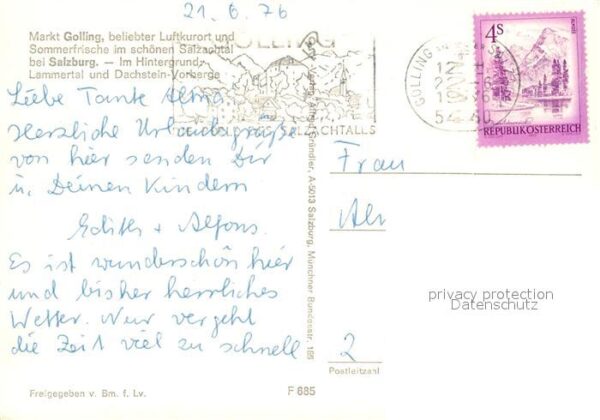 21. 6. 76
Markt Golling, beliebter Luftkurort und
Sommerfrische im schönen Salzachtal
bei Salzburg. — Im Hintergrund:
Lammertal und Dachstein-Vorberge
Liebe Tante Alma
Herzliche Urlaubsgrüße
von hier senden Dir
u. Deinen Kindern
Edith + Alfons.
Es ist wunderschön hier
und bisher herrliches
Wetter. Nur vergeht
die Zeit viel zu schnell
Freigegeben v. Bm. f. Lv.
F 685
GOLLING
SALZACHTALLS
Gründler, A-5013 Salzburg, Münchner Bundesstr. 165
GOLLING
5440
4 S
REPUBLIK ÖSTERREICH
Frau
privacy protection
Datenschutz
2
Postleitzahl